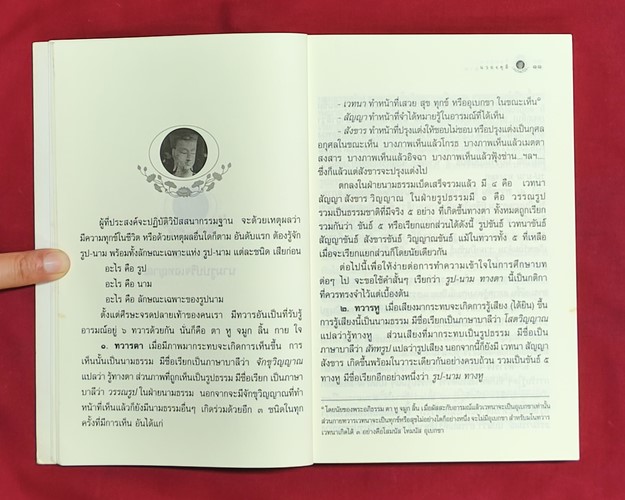 ผู้ที่ประสงค์จะปฏิบัติวิปัสสนากรรมฐาน จะด้วยเหตุผลว่า
มีความทุกข์ในชีวิต หรือด้วยเหตุผลอื่นใดก็ตาม อันดับแรก ต้องรู้จัก
รูป-นาม พร้อมทั้งลักษณะเฉพาะแห่ง รูป-นาม แต่ละชนิด เสียก่อน
อะไร คือ รูป
อะไร คือ นาม
อะไร คือ ลักษณะเฉพาะของรูปนาม
ตั้งแต่ศีรษะจรดปลายเท้าของคนเรา มีทวารอันเป็นที่รับรู้
อารมณ์อยู่ ๖ ทวารด้วยกัน นั่นก็คือ ตา หู จมูก ลิ้น กาย ใจ
๑. ทวารตา เมื่อมีภาพมากระทบจะเกิดการเห็นขึ้น การ
เห็นนั้นเป็นนามธรรม มีชื่อเรียกเป็นภาษาบาลีว่า จักขุวิญญาณ
แปลว่า รู้ทางตา ส่วนภาพที่ถูกเห็นเป็นรูปธรรม มีชื่อเรียก เป็นภาษา
บาลีว่า วรรณรูป ในฝ่ายนามธรรม นอกจากจะมีจักขุวิญญาณที่ทำ
หน้าที่เห็นแล้วก็ยังมีนามธรรมอื่นๆ เกิดร่วมด้วยอีก ๓ ชนิดในทุก
ครั้งที่มีการเห็น อันได้แก่
- เวทนา ทำหน้าที่เสวย สุข ทุกข์ หรืออุเบกขา ในขณะเห็น*
- สัญญา ทำหน้าที่จำได้หมายรู้ในอารมณ์ที่ได้เห็น
- สังขาร ทำหน้าที่ปรุงแต่งให้ชอบไม่ชอบ หรือปรุงแต่งเป็นกุศล
อกุศลในขณะเห็น บางภาพเห็นแล้วโกรธ บางภาพเห็นแล้วเมตตา
สงสาร บางภาพเห็นแล้วอิจฉา บางภาพเห็นแล้วฟุ้งซ่าน...ฯลฯ...
ซึ่งก็แล้วแต่สังขารจะปรุงแต่งไป
ตกลงในฝ่ายนามธรรมเบ็ดเสร็จรวมแล้ว มี ๔ คือ เวทนา
สัญญา สังขาร วิญญาณ ในฝ่ายรูปธรรมมี ๑ คือ วรรณรูป
รวมเป็นธรรมชาติที่มีจริง ๕ อย่าง ที่เกิดขึ้นทางตา ทั้งหมดถูกเรียก
รวมกันว่า ขันธ์ ๕ หรือเรียกแยกส่วนได้ดังนี้ รูปขันธ์ เวทนาขันธ์
สัญญาขันธ์ สังขารขันธ์ วิญญาณขันธ์ แม้ในทวารทั้ง ๕ ที่เหลือ
เมื่อจะเรียกแยกส่วนก็โดยนัยเดียวกัน
ต่อไปนี้เพื่อให้ง่ายต่อการทำความเข้าใจในการศึกษาบท
ต่อๆ ไป จะขอใช้คำสั้นๆ เรียกว่า รูป-นาม ทางตา นี้เป็นกติกา
ที่ควรทรงจำไว้แต่เบื้องต้น
๒. ทวารหู เมื่อเสียงมากระทบจะเกิดการรู้เสียง (ได้ยิน) ขึ้น
การรู้เสียงนี้เป็นนามธรรม มีชื่อเรียกเป็นภาษาบาลีว่า โสตวิญญาณ
แปลว่ารู้ทางหู ส่วนเสียงที่มากระทบเป็นรูปธรรม มีชื่อเป็น
ภาษาบาลีว่า สัททรูป แปลว่ารูปเสียง นอกจากนี้ก็ยังมี เวทนา สัญญา
สังขาร เกิดขึ้นพร้อมในวาระเดียวกันอย่างครบถ้วน รวมเป็นขันธ์ ๕
ทางหู มีชื่อเรียกอีกอย่างหนึ่งว่า รูป-นาม ทางหู
* โดยนัยของพระอภิธรรม ตา หู จมูก ลิ้น เมื่อผัสสะกับอารมณ์แล้วเวทนาจะเป็นอุเบกขาเท่านั้น
ส่วนกายทวารเวทนาจะเป็นทุกข์หรือสุขไม่อย่างใดก็อย่างหนึ่ง จะไม่มีอุเบกขา สำหรับมโนทวาร
เวทนาเกิดได้ ๓ อย่างคือโสมนัส โทมนัส อุเบกขา